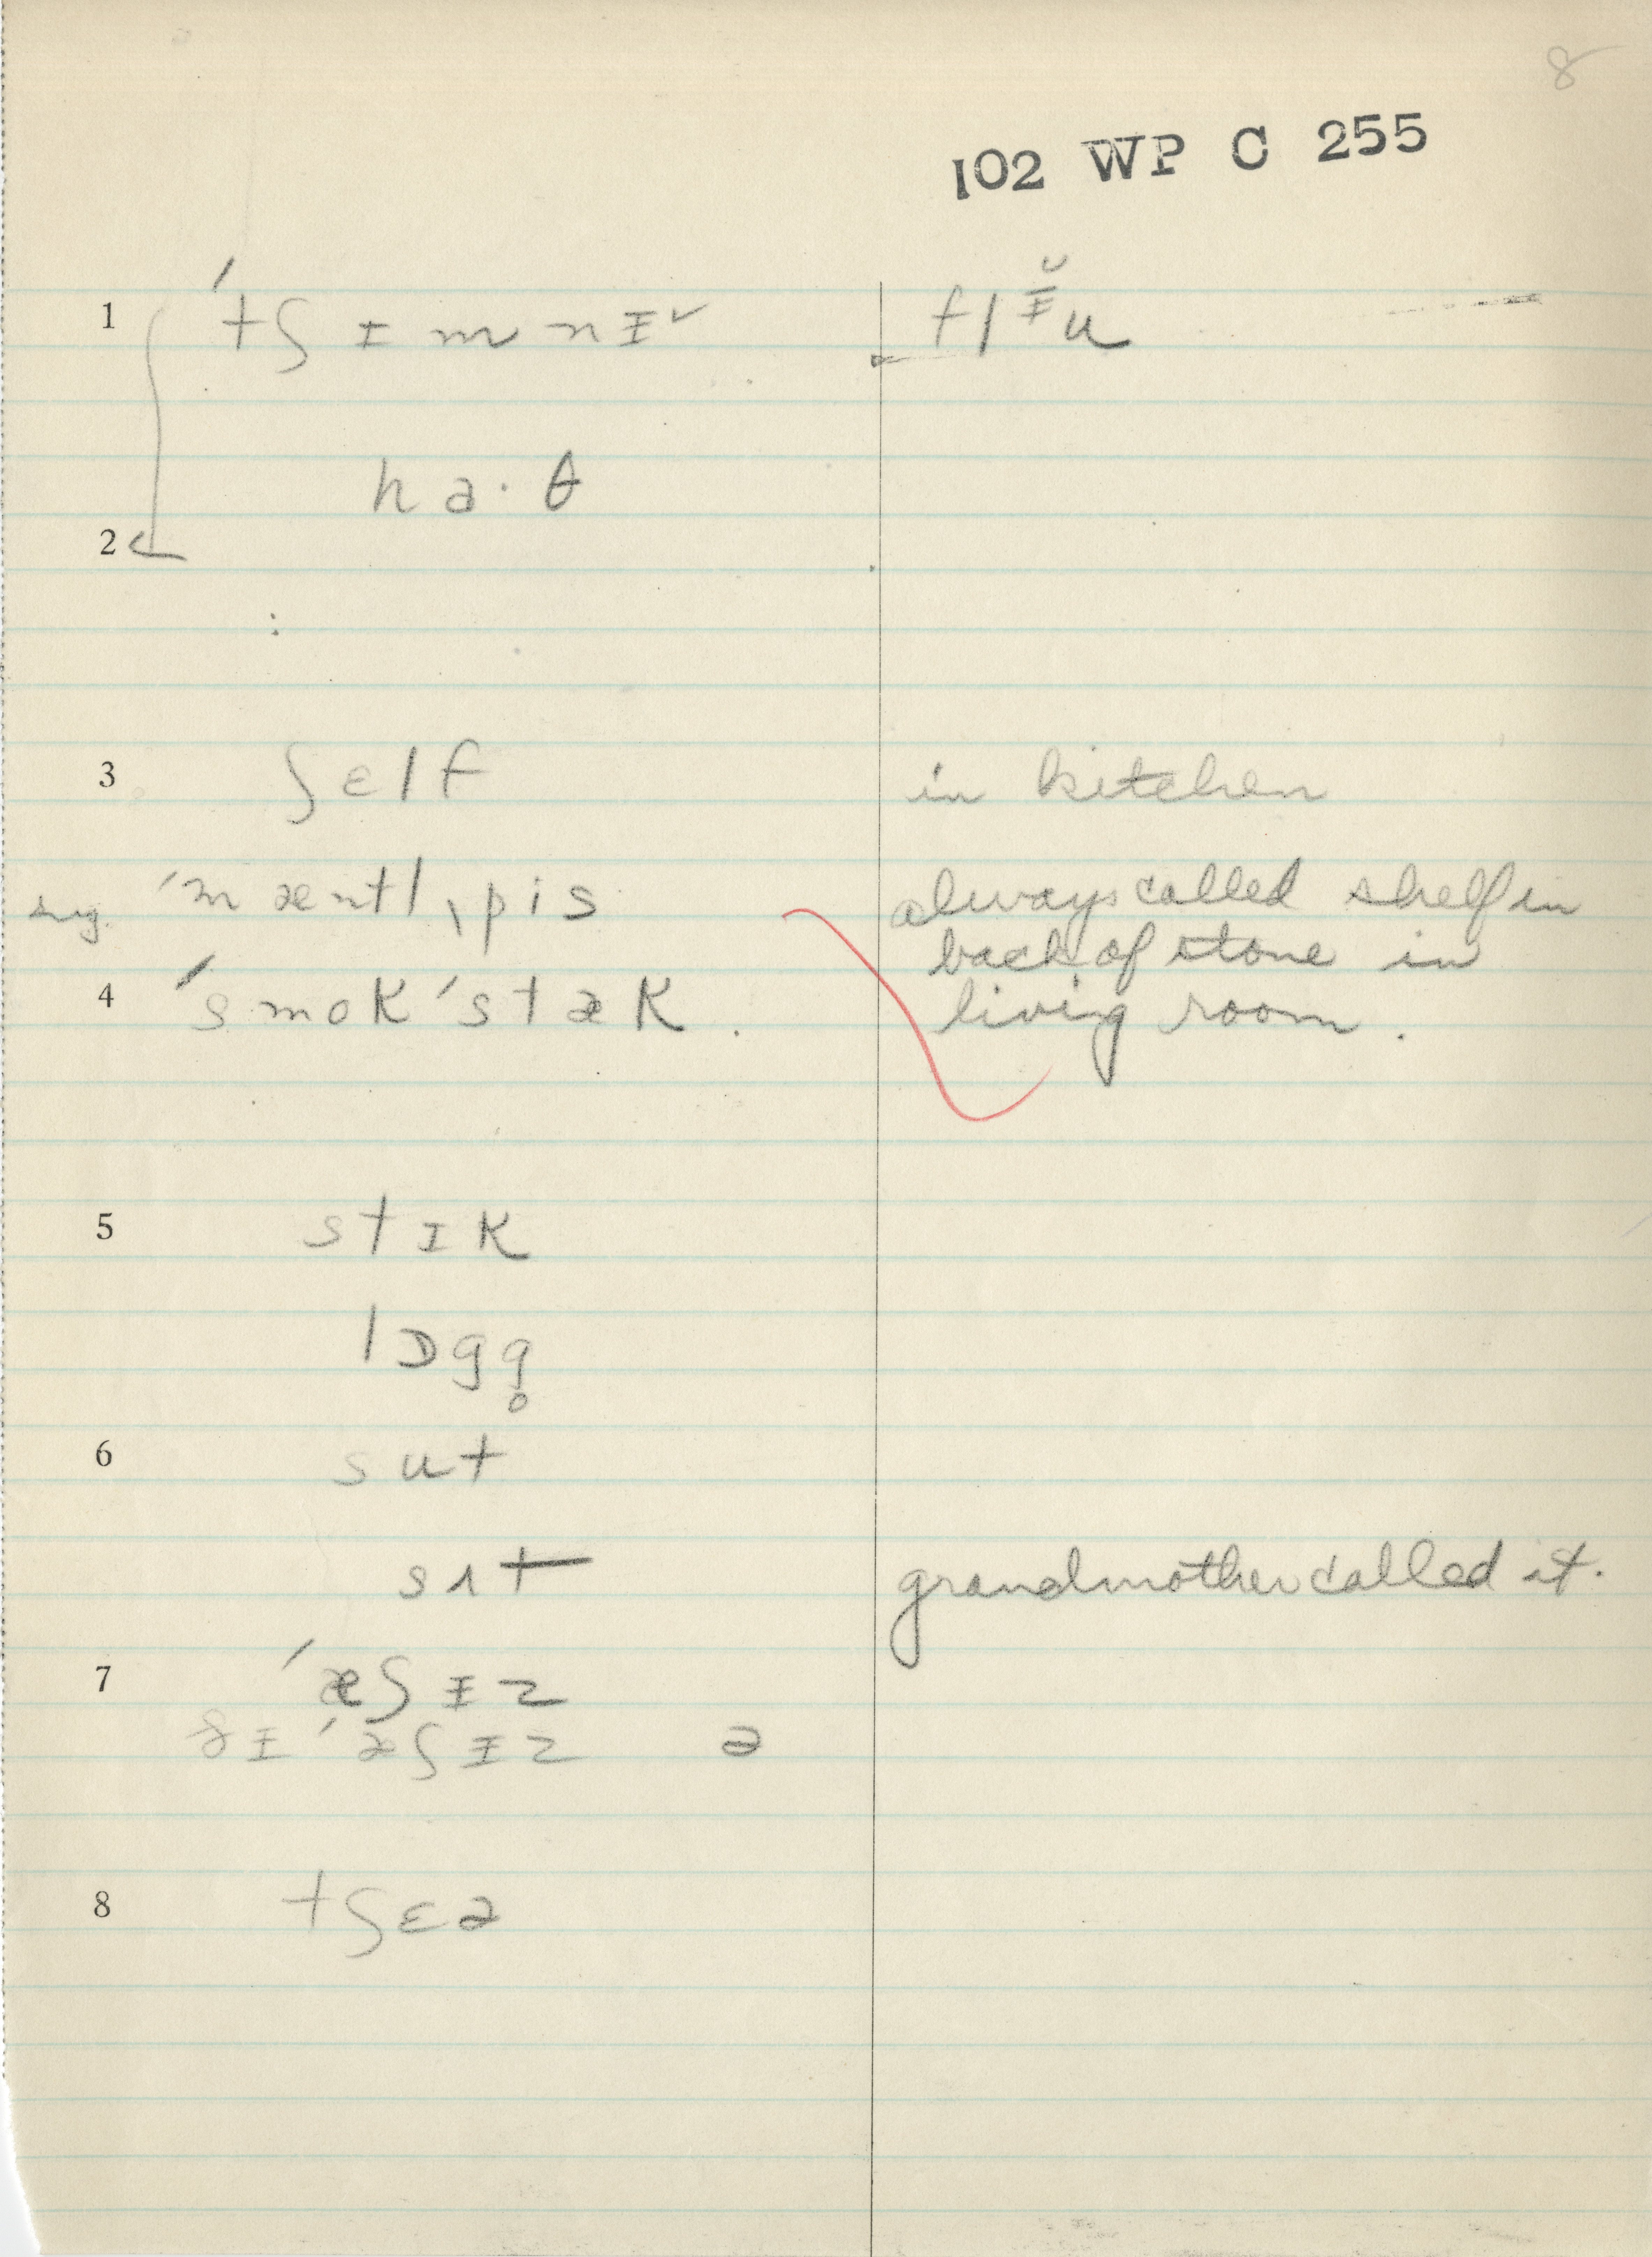 8
102 WP C 255
1 ˈtʃɪmnɪ˅ flɪ̆u
ha·θ
2
3 ʃelf in kitchen
sug. ˈmæntlˌpis always called shelf in
back of stone in
4 ˈsmokˈstæk. living room.
5 stɪk
lɒgg̥
6 sut
sʌt grandmother called it.
7 ˈæʃɪz
ðɪ ˈæʃɪz ə
8 tʃɛə